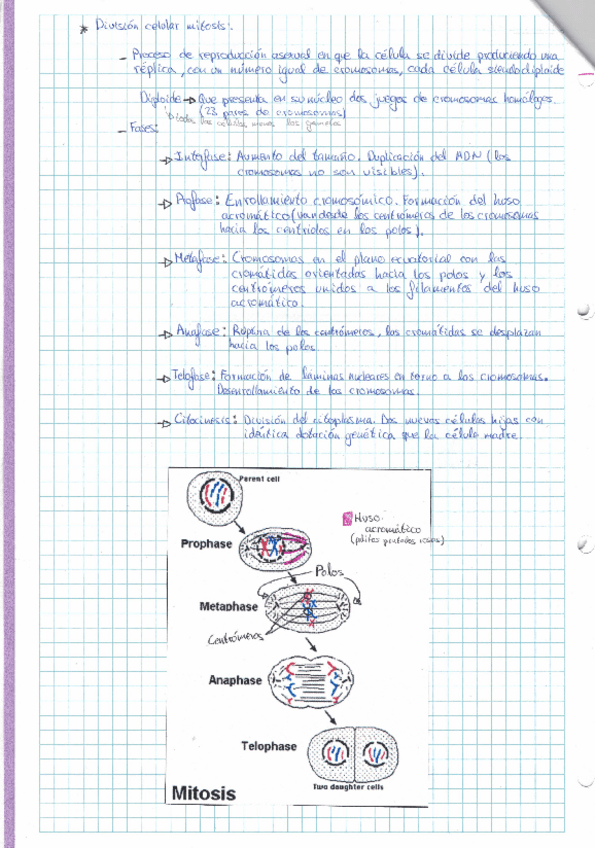 * División celular mitosis:
- Proceso de reproducción asexual en que la célula se divide produciendo una
réplica, con un número igual de cromosomas, cada célula siendo diploide
Diploide → Que presenta en su núcleo dos juegos de cromosomas homólogos.
(23 pares de cromosomas)
las células menos los gametos
- Fases:
→ Interfase: Aumento del tamaño. Duplicación del ADN (los
cromosomas no son visibles).
→ Profase: Enrollamiento cromosómico. Formación del huso
acromático (van desde los centrómeros de los cromosomas
hacia los centriolos en los polos).
→ Metafase: Cromosomas en el plano ecuatorial con las
cromátidas orientadas hacia los polos y los
centrómeros unidos a los filamentos del huso
acromático.
→ Anafase: Ruptura de los centrómeros, las cromátidas se desplazan
hacia los polos
→ Telofase: Formación de laminas nucleares en torno a los cromosomas.
Desenrollamiento de los cromosomas.
→ Citocinesis: División del citoplasma. Dos nuevas células hijas con
idéntica dotación genética que la célula madre.
Parent cell
Huso
acromático
(palitos pintados rosas)
Prophase
Polos
Metaphase
Centrómeros
Anaphase
Telophase
Two daughter cells
Mitosis